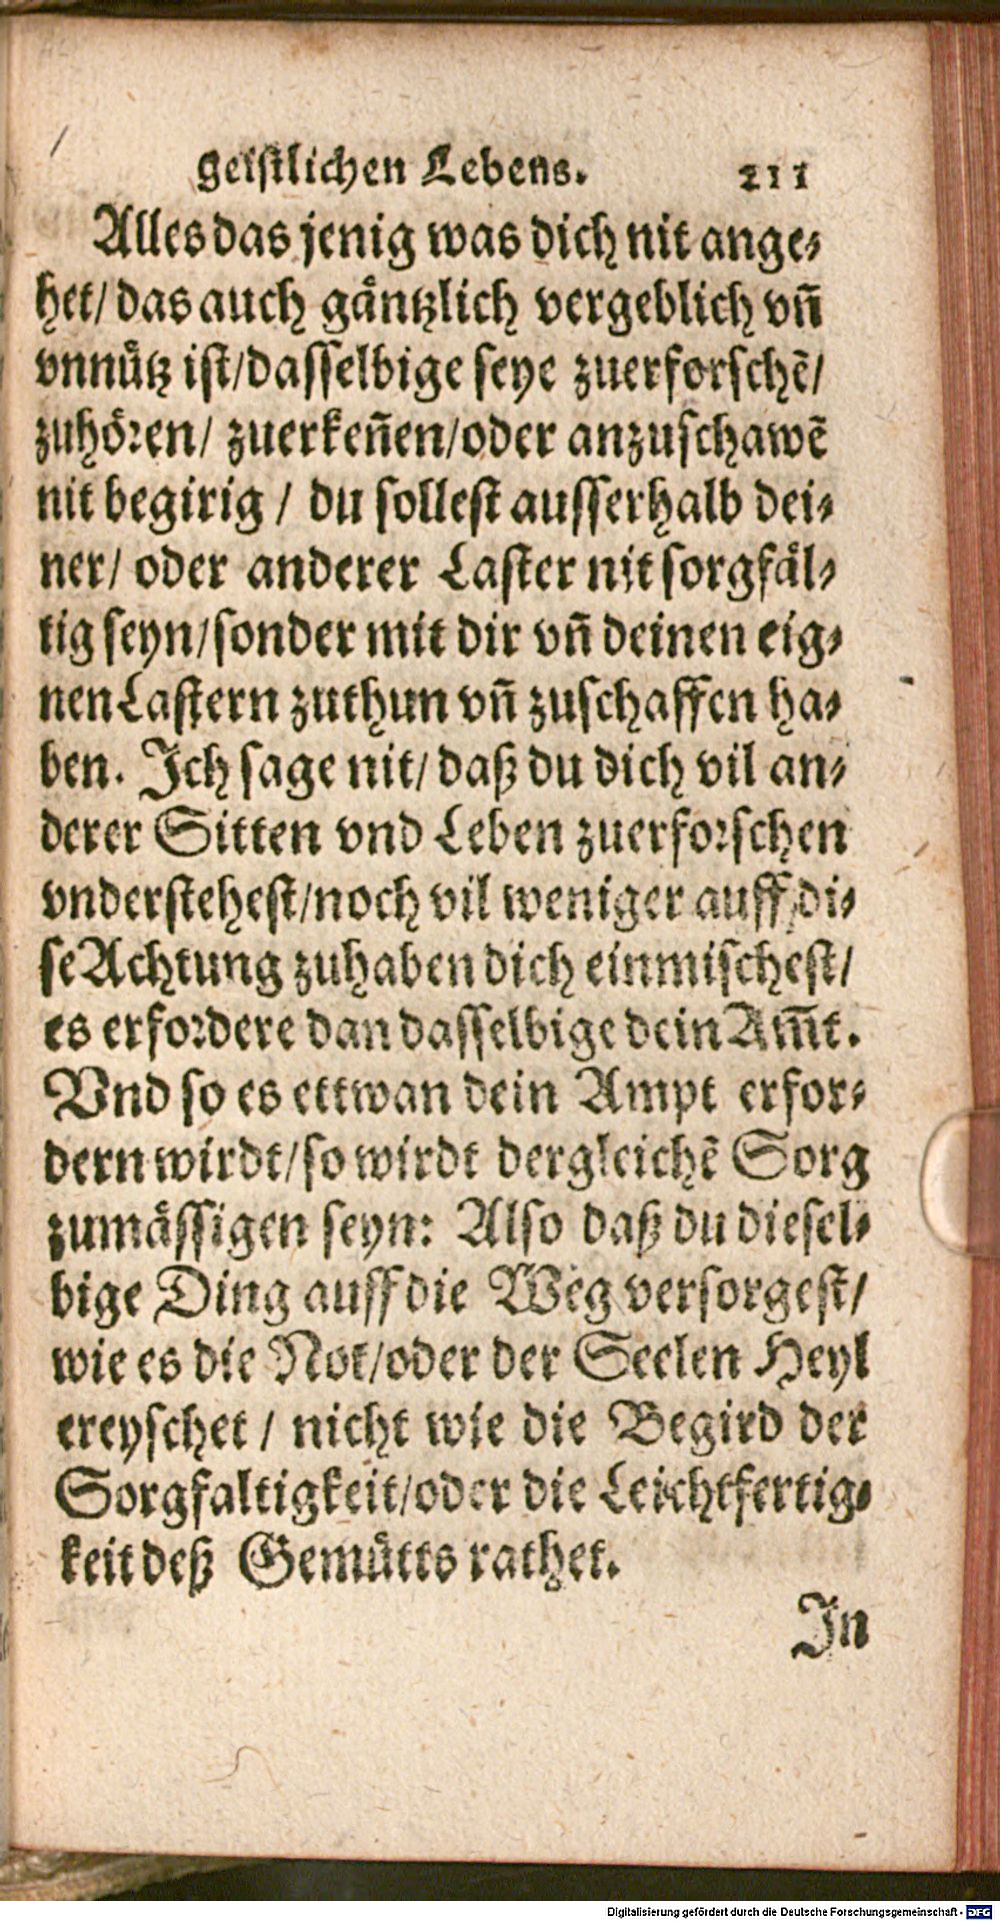 geistlichen Lebens. 211
Alles das jenig was dich nit ange⸗
het/ das auch gäntzlich vergeblich vn̄
vnnütz ist/dasselbige seye zuerforschē/
zuhören/ zuerkeñen/oder anzuschawē
nit begirig / du sollest ausserhalb dei⸗
ner/ oder anderer Laster nit sorgfäl⸗
tig seyn/sonder mit dir vn̄ deinen eig⸗
nen Lastern zuthun vn̄ zuschaffen ha⸗
ben. Ich sage nit/ daß du dich vil an⸗
derer Sitten vnd Leben zuerforschen
vnderstehest/noch vil weniger auff di⸗
se Achtung zuhaben dich einmischest/
es erfordere dan dasselbige dein Am̄t.
Vnd so es ettwan dein Ampt erfor⸗
dern wirdt/so wirdt dergleichē Sorg
zumässigen seyn: Also daß du diesel⸗
bige Ding auff die Weg versorgest/
wie es die Not/oder der Seelen Heyl
ereyschet / nicht wie die Begird der
Sorgfaltigkeit/oder die Leichtfertig⸗
keit deß Gemütts rathet.
In
Digitalisierung gefördert durch die Deutsche Forschungsgemeinschaft - DFG